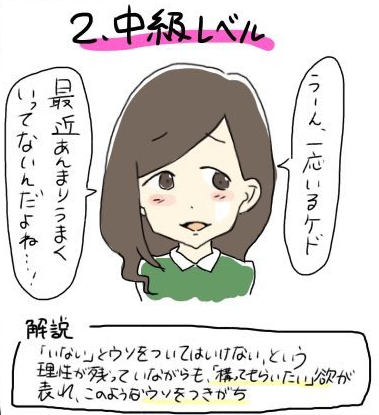 2.中級レベル
うーん、一応いるケド
最近あんまりうまく
いってないんだよね…!
解説
「いない」とウソをついてはいけない、という
理性が残っていながらも、「構ってもらいたい」欲が
表れ、このようなウソをつきがち